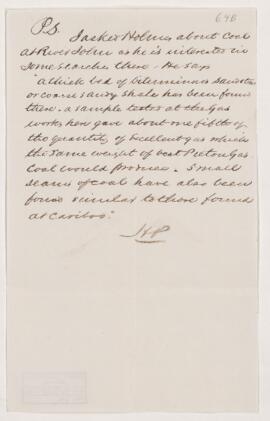 64B
P.S. I asked Holmes about Coal
at River John as he is interested in
some searches there. He says
"a thick bed of bituminous sandstone
or coarse sandy shale has been found
there. a sample tested at the gas
works here gave about one fifth of
the quantity of excellent gas which
the same weight of best Pictou Gas
Coal would produce. Small
seams of coal have also been
found similar to those found
at Cariboo."